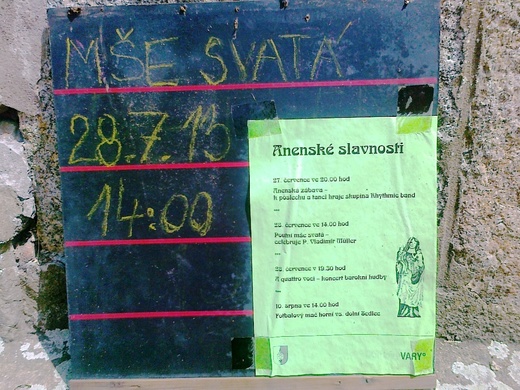 MŠE SVATÁ
28.7.13
14:00
Anenské slavnosti
27. července ve 20.00 hod
Anenská zábava –
k poslechu a tanci hraje skupina Rhythmic band
---
28. července ve 14.00 hod
Poutní mše svatá –
celebruje P. Vladimír Müller
---
28. července v 19.30 hod
A quattro voci – koncert barokní hudby
---
10. srpna ve 14.00 hod
Fotbalový mač horní vs. dolní Sedlec
VARY°